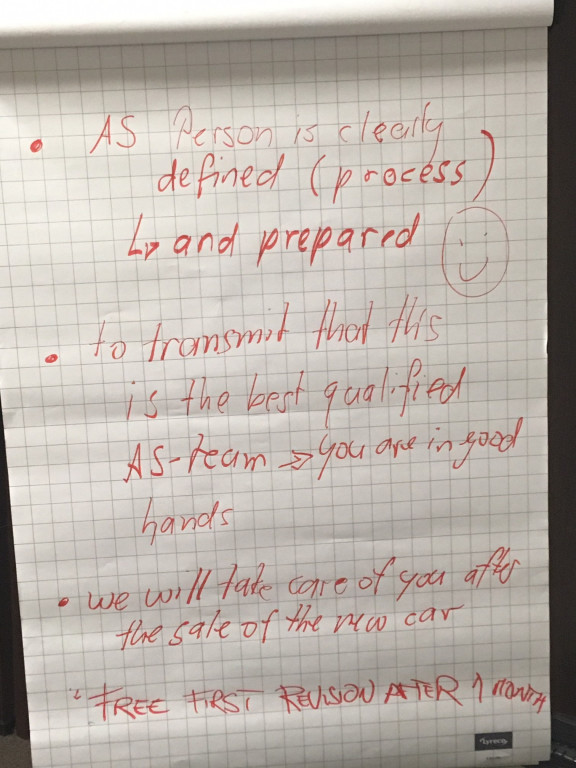 • AS Person is clearly
defined (process)
↳ and prepared
• to transmit that this
is the best qualified
AS-team => you are in good
hands
• we will take care of you after
the sale of the new car
• FREE FIRST REVISION AFTER 1 MONTH